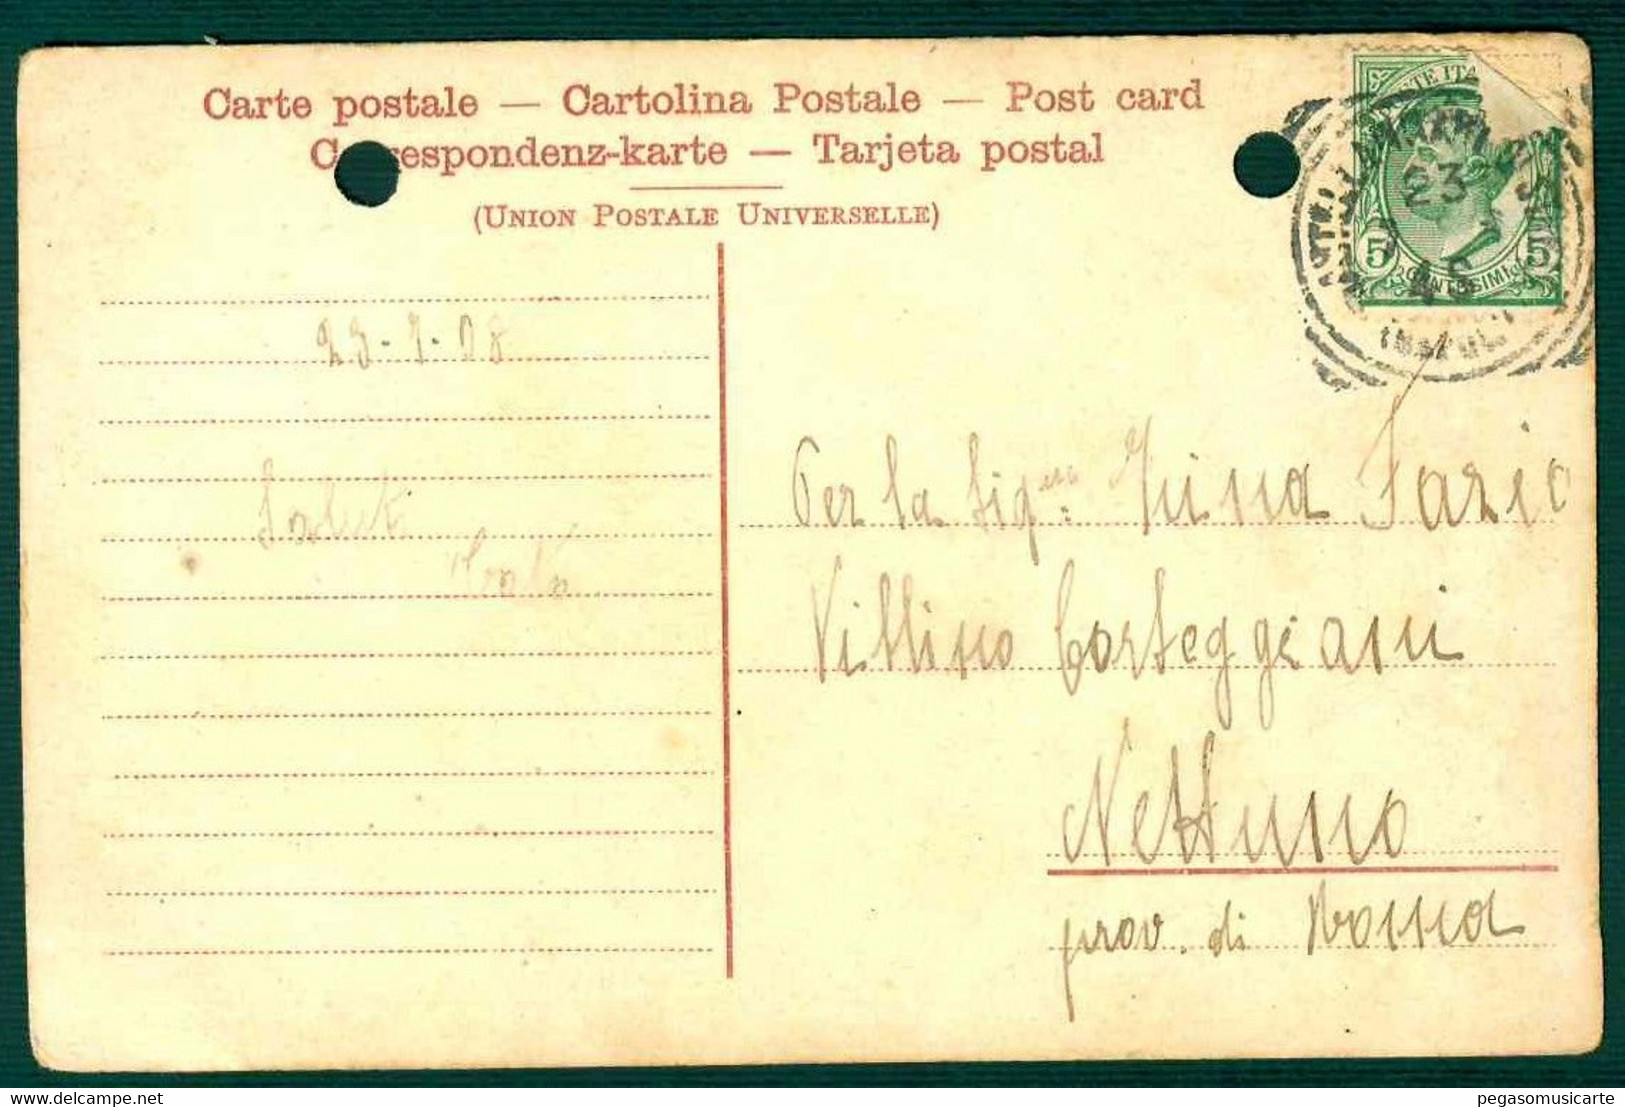 Carte postale — Cartolina Postale — Post card
C respondenz-karte — Tarjeta postal
(UNION POSTALE UNIVERSELLE)
POSTE ITA
23
5 CENTESIMI 5
23-7-08
Saluti
Per la Sig.ra Nina Fazio
Villino Corteggiani
Nettuno
prov. di Roma
delcampe.net
pegasomusicarte